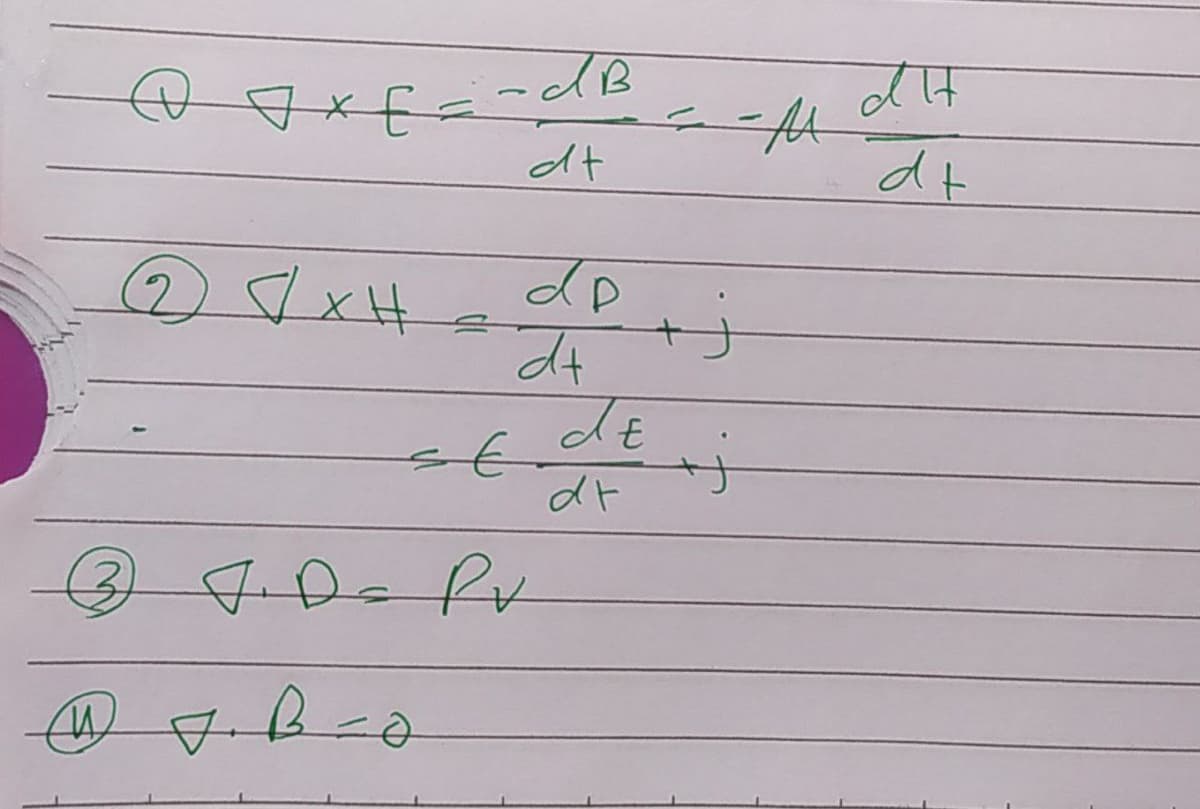 ① ∇ × E = -dB/dt = -μ dH/dt
② ∇ × H = dD/dt + j
= ϵ dE/dt + j
③ ∇. D = ρv
④ ∇. B = 0